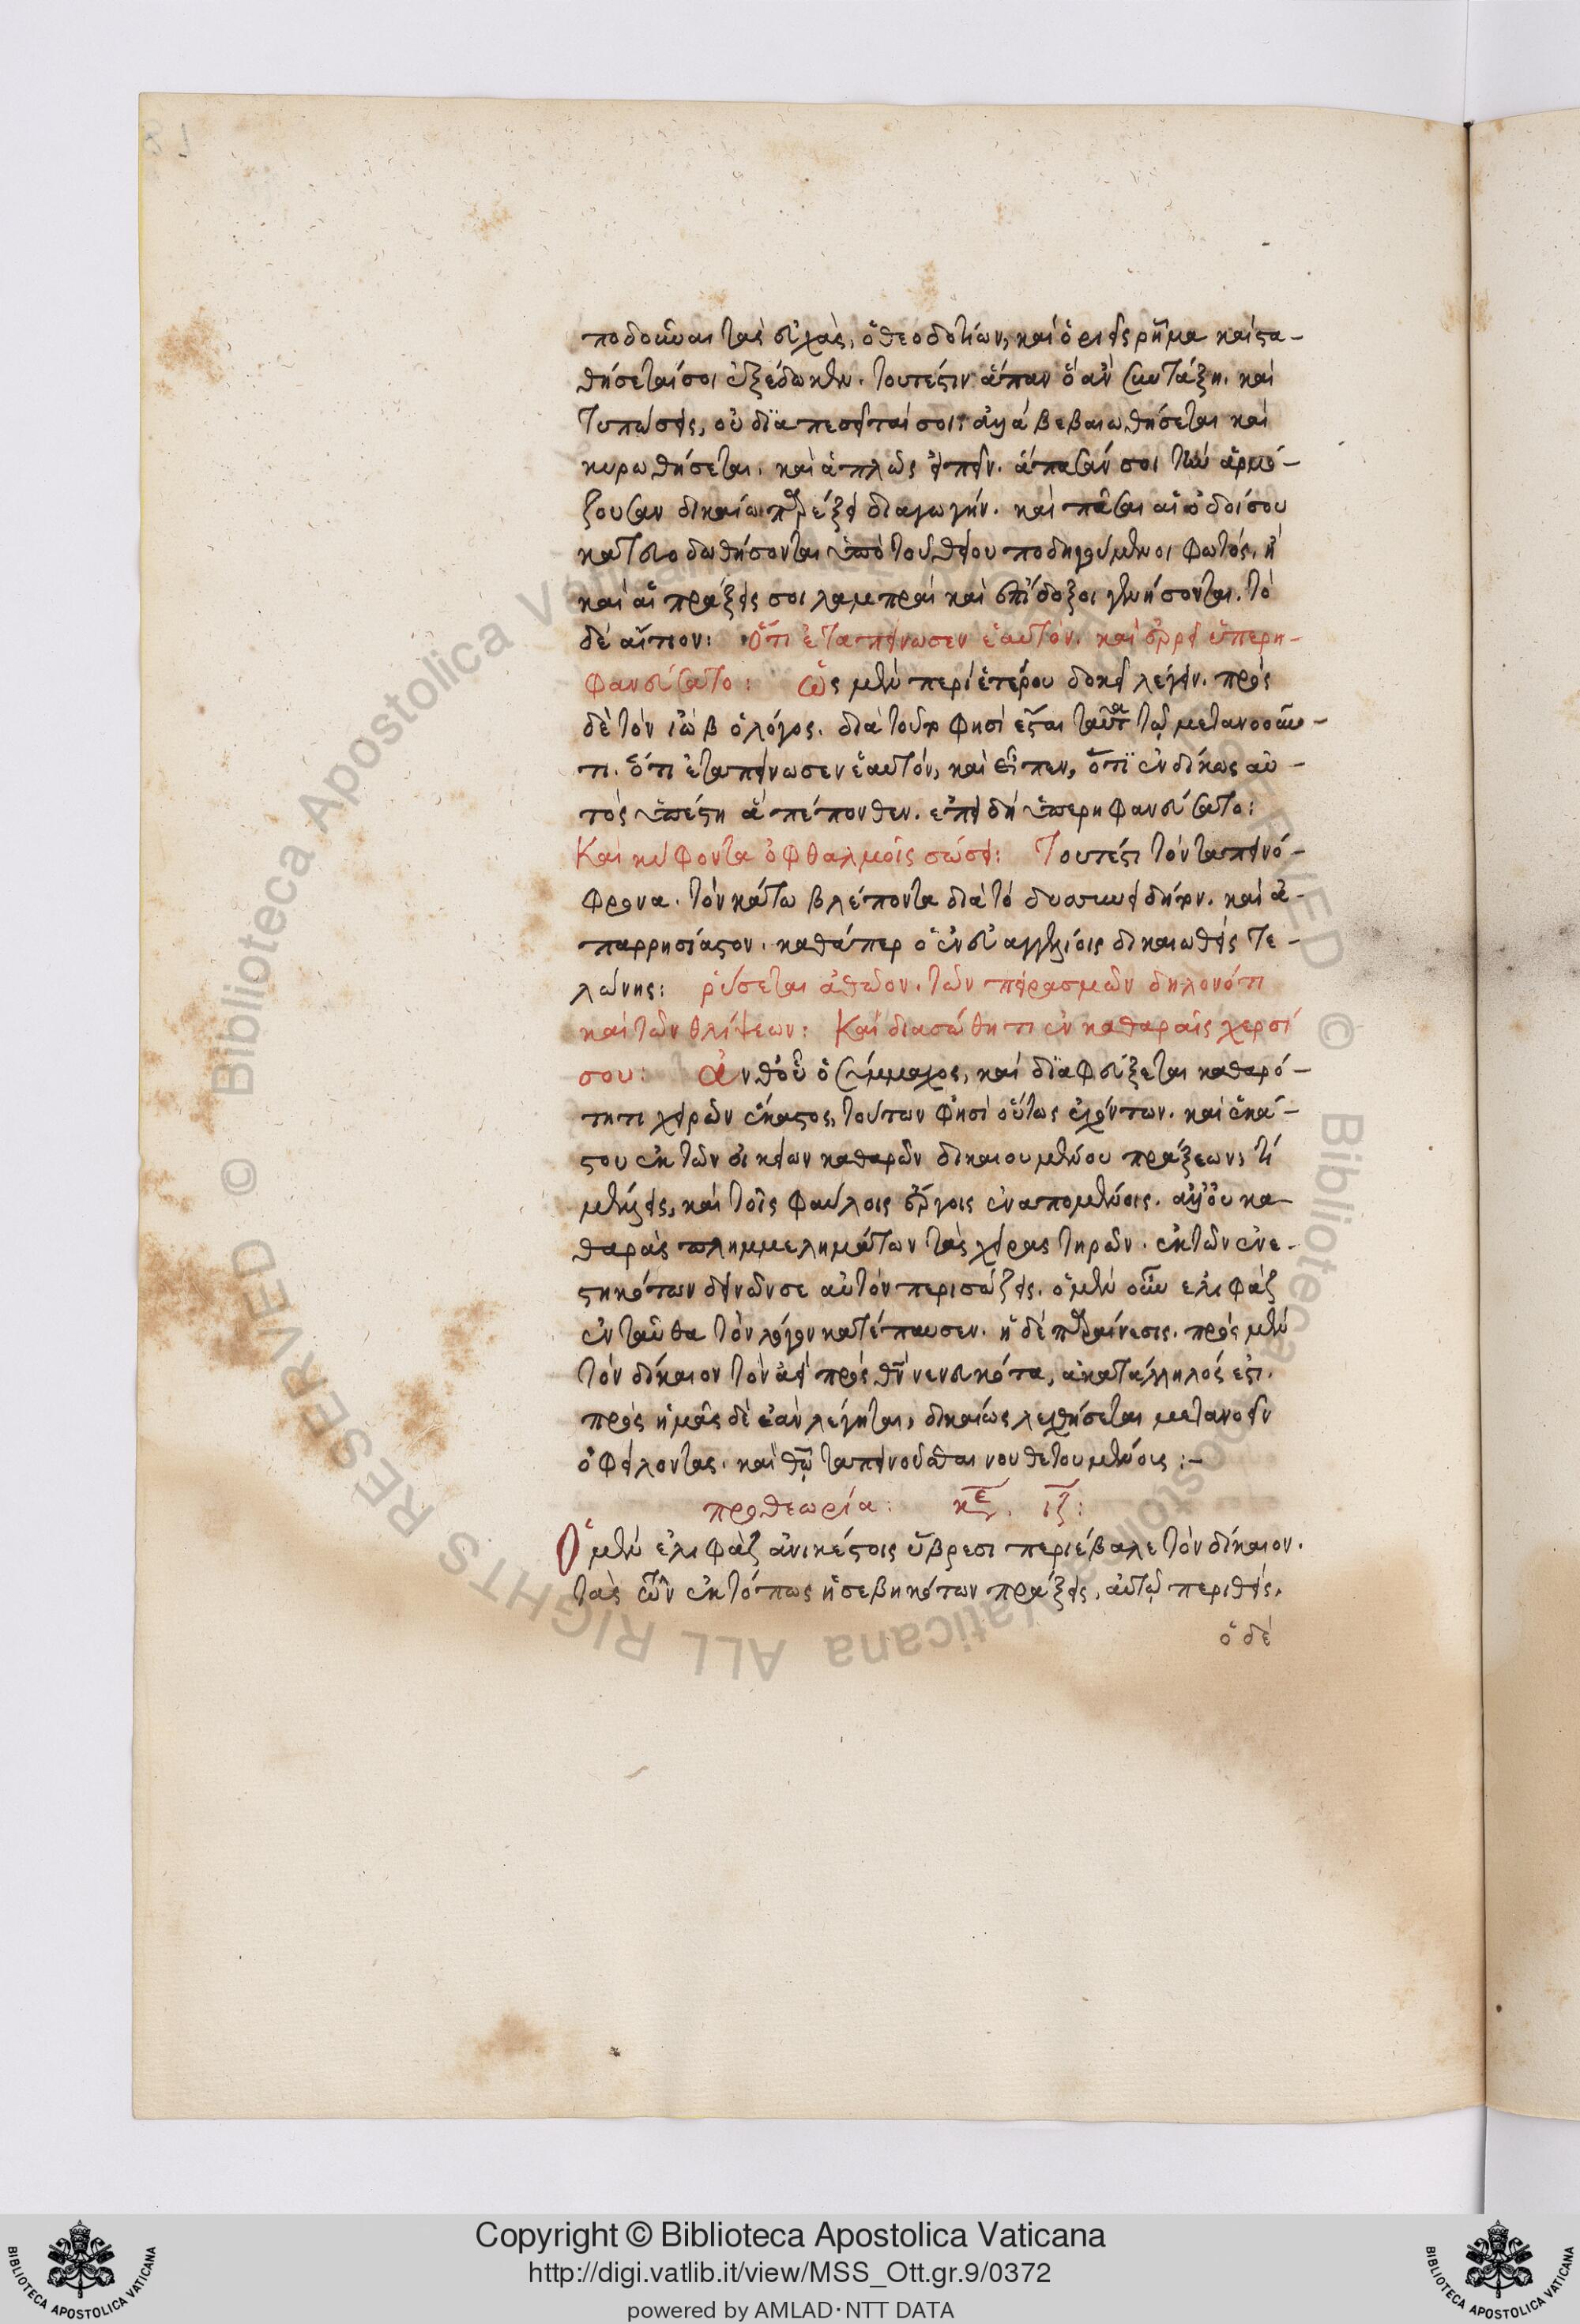 ποδοῦναι τὰς εὐχάς, ὁ θεοδοτίων, καὶ ὁριεῖς ῥῆμα καὶ στα-
θήσεταί σοι ἐξέδωκεν. τουτέστιν ἅπαν ὃ ἂν συντάξῃ. καὶ
τυπώσεις, οὐ διαπεσεῖταί σοι· ἀλλὰ βεβαιωθήσεται καὶ
κυρωθήσεται. καὶ ἁπλῶς εἰπεῖν. ἅπασάν σοι τὴν ἁρμό-
ζουσαν δικαίω παρέξει διαγωγήν. καὶ πᾶσαι αἱ ὁδοί σου
κατευοδωθήσονται ὑπὸ τοῦ θείου ποδηγούμενοι φωτός. ἢ
καὶ αἱ πράξεις σοι λαμπραὶ καὶ ἐπίδοξοι γενήσονται. τὸ
δὲ αἴτιον: Ὅτι ἐταπείνωσεν ἑαυτόν. καὶ ἐρεῖ ὑπερη-
φανεύσατο: Ὡς μὲν περὶ ἑτέρου δοκεῖ λέγειν. πρὸς
δὲ τὸν ἰὼβ ὁ λόγος. διὰ τοῦτο φησὶ ἔσται ταῦτα τῷ μετανοοῦν-
τι. ὅτι ἐταπείνωσεν ἑαυτόν, καὶ εἶπεν, ὅτι ἐνδίκως αὐ-
τὸς ὑπέστη ἃ πέπονθεν. ἐπειδὴ ὑπερηφανεύσατο:
Καὶ κύφοντα ὀφθαλμοῖς σώσει: Τουτέστι τὸν ταπεινό-
φρονα. τὸν κάτω βλέποντα διὰ τὸ δυσσυνείδητον. καὶ ἀ-
παρρησίαστον. καθάπερ ὁ ἐν εὐαγγελίοις δικαιωθεὶς τε-
λώνης: ῥύσεται ἀθῶον. τῶν πειρασμῶν δηλονότι
καὶ τῶν θλίψεων: Καὶ διασώθητι ἐν καθαραῖς χερσί
σου: ἀνθ' οὗ ὁ σύμμαχος, καὶ διαφεύξεται καθαρό-
τητι χειρῶν ἕκαστος, τούτων φησὶ οὕτως ἐχόντων. καὶ ἑκά-
στου ἐκ τῶν οἰκείων καθαρῶν δικαιουμένου πράξεων, τί
μέλλεις, καὶ τοῖς φαύλοις ἔργοις ἐναπομένεις. ἀλλ' οὐ κα
θαρὰς πλημμελημάτων τὰς χεῖρας τηρῶν. ἐκ τῶν ἐνε-
στηκότων δεινῶν σεαυτὸν περισώζεις. ὁ μὲν οὖν ἐλιφὰζ
ἐνταῦθα τὸν λόγον κατέπαυσεν. ἡ δὲ παραίνεσις. πρὸς μὲν
τὸν δίκαιον τὸν ἀεὶ πρὸς θν̄ νενευκότα, ἀκατάλληλός ἐστι.
πρὸς ἡμᾶς δὲ ἐὰν λέγηται, δικαίως λεχθήσεται μετανοεῖν
ὀφείλοντας. καὶ θω̄ ταπεινοῦσθαι νουθετουμένοις :-
προθεωρία: κε. ιζ:
Ὁ μὲν ἐλιφὰζ ἀνικέστοις ὕβρεσι περιέβαλε τὸν δίκαιον.
τὰς τῶν ἐκτόπως ἠσεβηκότων πράξεις, αὐτῷ περιθείς.
ὁ δὲ
Copyright © Biblioteca Apostolica Vaticana
http://digi.vatlib.it/view/MSS_Ott.gr.9/0372
powered by AMLAD·NTT DATA
BIBLIOTECA APOSTOLICA VATICANA
BIBLIOTECA APOSTOLICA VATICANA